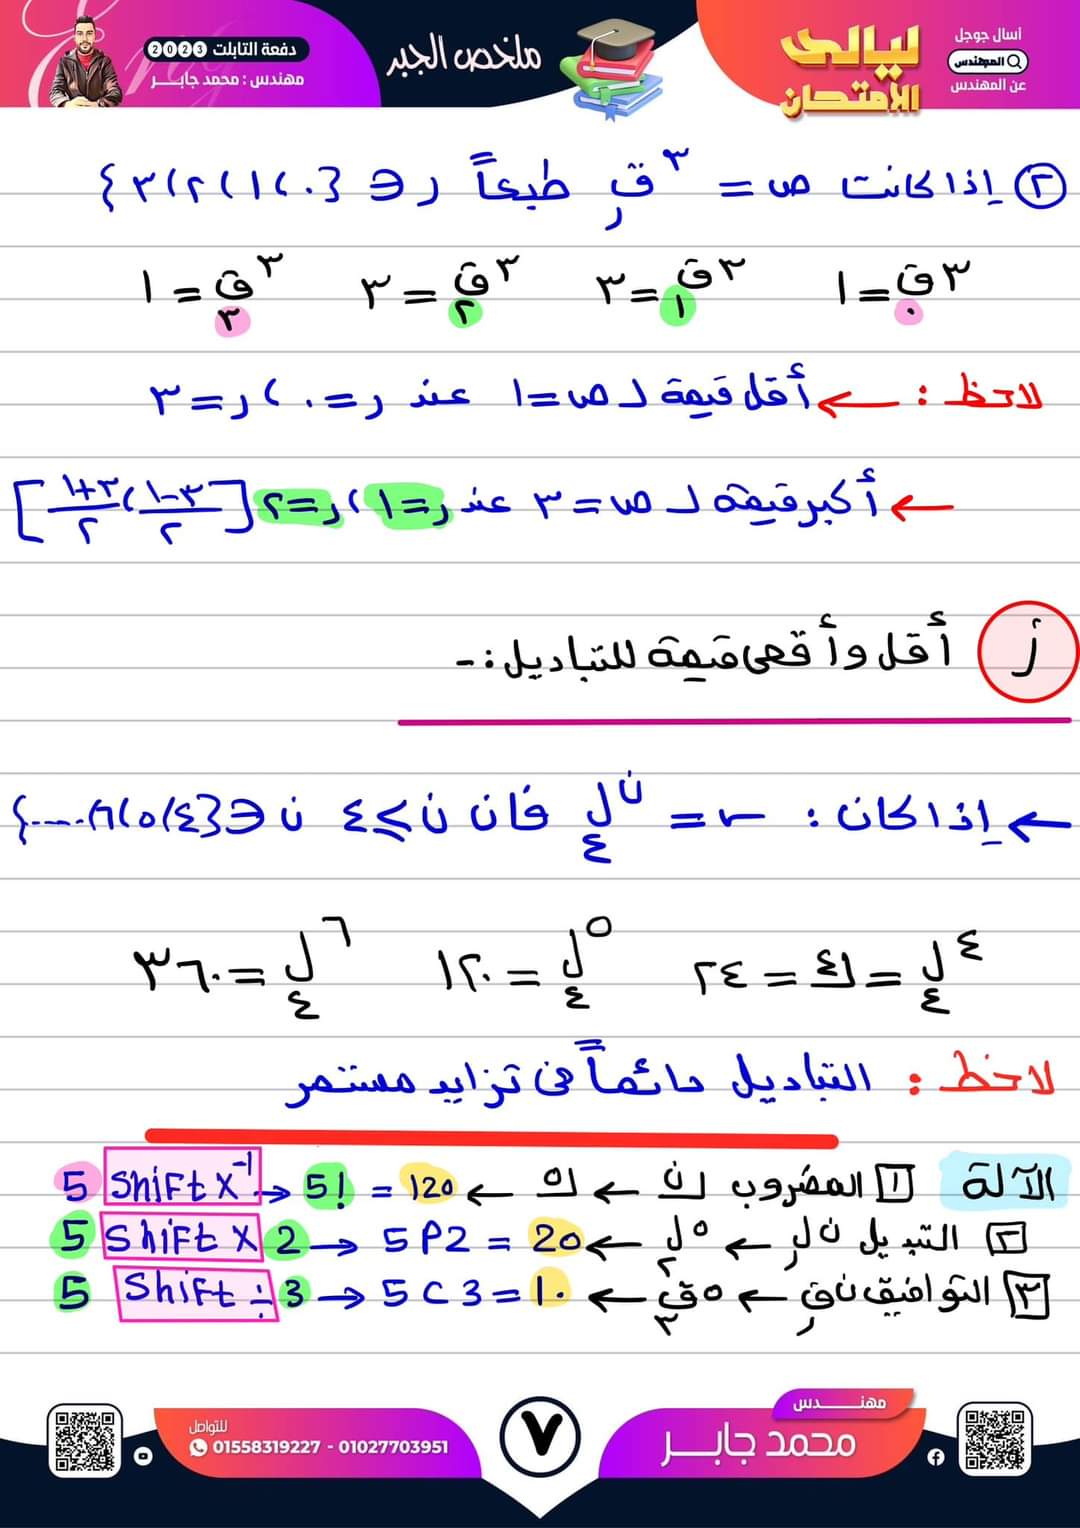 اسأل جوجل
المهندس
عن المهندس
ليالى
الامتحان
ملخص الجبر
دفعة التابلت 2023
مهندس : محمد جابـــر
٢ إذا كانت ص = ٣ق ر طبعاً ر ∈ {٠،١،٢،٣}
٣ق٠ = ١ ٣ق١ = ٣ ٣ق٢ = ٣ ٣ق٣ = ١
لاحظ : ← أقل قيمة لـ ص = ١ عند ر = ٠ ، ر = ٣
← أكبر قيمة لـ ص = ٣ عند ر = ١ ، ر = ٢ [٣-١/٢ ، ٣+١/٢]
أقل وأقصى قيمة للتباديل :-
← إذا كان : س = نل٤ فان ن ≥ ٤ ن ∈ {٤،٥،٦،....}
٤ل٤ = ⌊٤ = ٢٤ ٥ل٤ = ١٢٠ ٦ل٤ = ٣٦٠
لاحظ : التباديل دائماً فى تزايد مستمر
الآلة ١ المضروب ⌊ن ← ⌊٥ ← 5 Shift X⁻¹ → 5! = 120
٢ التبديل نلر ← ٥ل٢ ← 5 Shift X 2 → 5P2 = 20
٣ التوافيق نقر ← ٥ق٣ ← 5 Shift ÷ 3 → 5C3 = 10
مهنـــدس
محمد جابـــر
٧
للتواصل
01558319227 - 01027703951